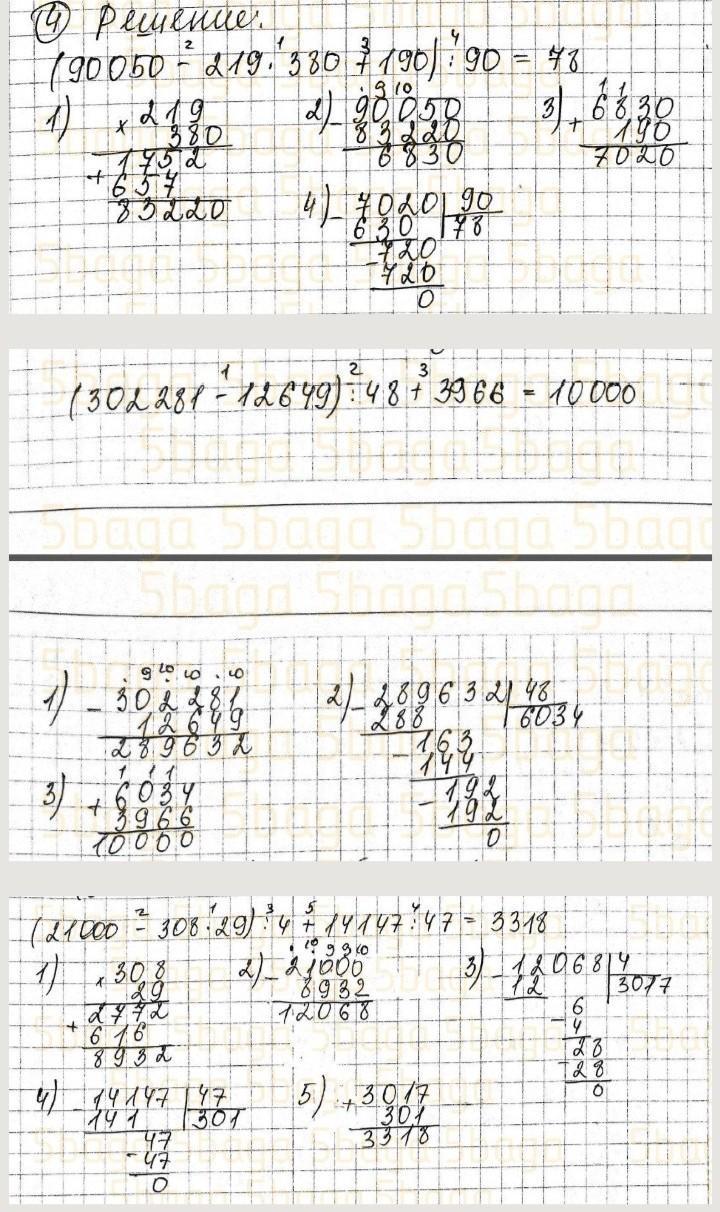 4 Решение:
(90050 - 219 · 380 + 190) : 90 = 78
1) × 219
380
+ 1752
657
83220
2) - 90050
83220
6830
3) + 6830
190
7020
4) - 7020 | 90
630 | 78
- 720
720
0
(302281 - 12649) : 48 + 3966 = 10000
1) - 302281
12649
289632
2) - 289632 | 48
288 | 6034
- 163
144
- 192
192
0
3) + 6034
3966
10000
(21000 - 308 · 29) : 4 + 14147 : 47 = 3318
1) × 308
29
+ 2772
616
8932
2) - 21000
8932
12068
3) - 12068 | 4
12 | 3017
- 6
4
- 28
28
0
4) - 14147 | 47
141 | 301
- 47
47
0
5) + 3017
301
3318
5baga 5baga 5baga